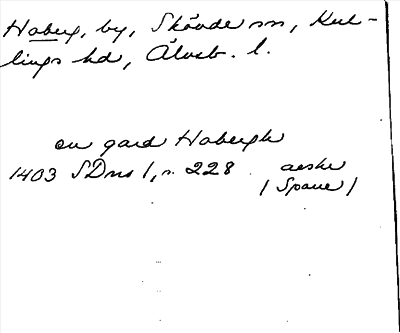 Haberg, by, Skövde sn, Kul-
lings hd, Älvsb. l.
en gard Habergh
1403 SDns 1, s. 228 aeske
(Spane)